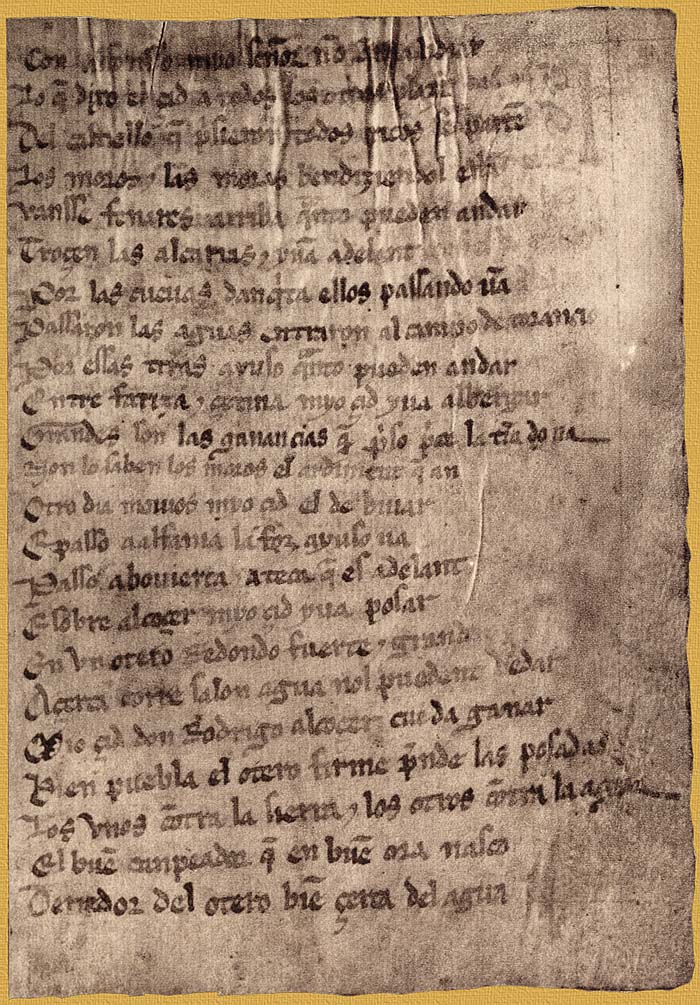 Con alfonsso myo señor nõ
Lo q̃ dixo el çid a todos los otros plaz
Del castiello q̃ prisieron todos ricos se partẽ
Los moros ⁊ las moras bendiziendol están
Vansse fenares arriba q̃nto pueden andar
Troçen las alcarias ⁊ yuã adelant
Por las cueuas danq̃ta ellos passando uã
Passaron las aguas entraron al campo de torançio
Por essas tr̃ras ayuso q̃nto pueden andar
Entre fariza ⁊ çetina myo çid yua albergar
Grandes son las ganançias q̃ p̃so por la tr̃ra do ua
Non lo saben los moros el ardiment q̃ an
Otro dia mouios myo çid el de biuar
E passo a alfama la foz ayuso ua
Passo a bouierca ⁊ a teca q̃ es adelant
E sobre alcoçer myo çid yua posar
En vn otero Redondo fuerte ⁊ grand
Açerca corre salon agua nol pueden vedar
Myo çid don Rodrigo alcoçer cueda ganar
Bien puebla el otero firme p̃nde las posadas
Los vnos cõtra la sierra ⁊ los otros cõtra la agua
El buẽ canpeador q̃ en buẽ ora nasco
Derredor del otero biẽ çerca del agua